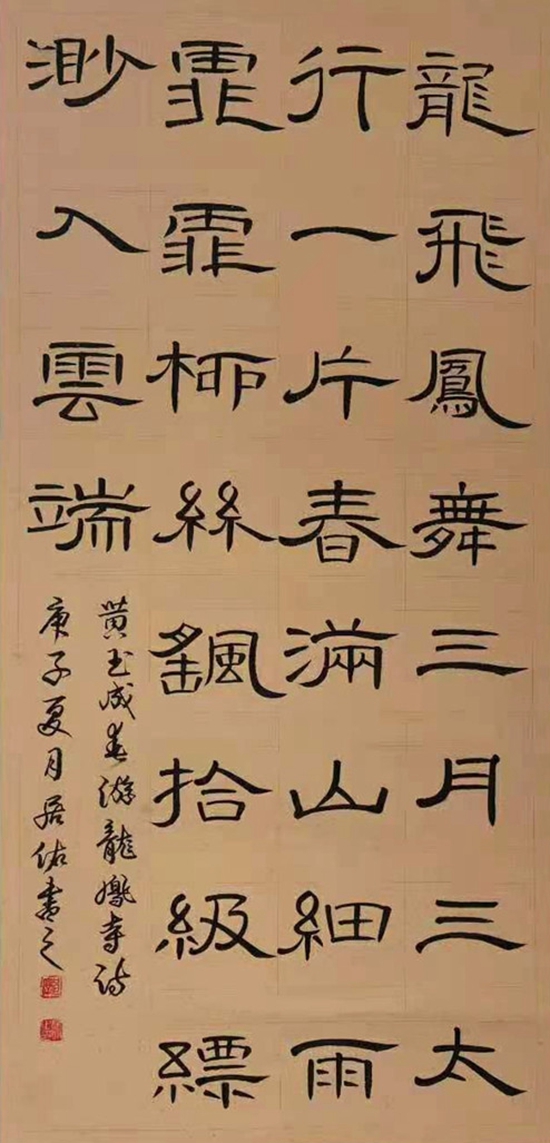 龍飛鳳舞三月三太
行一片春滿山細雨
霏霏柳絲飄拾級縹
渺入雲端
黄玉成春游龍鳳寺詩
庚子夏月居佑書之